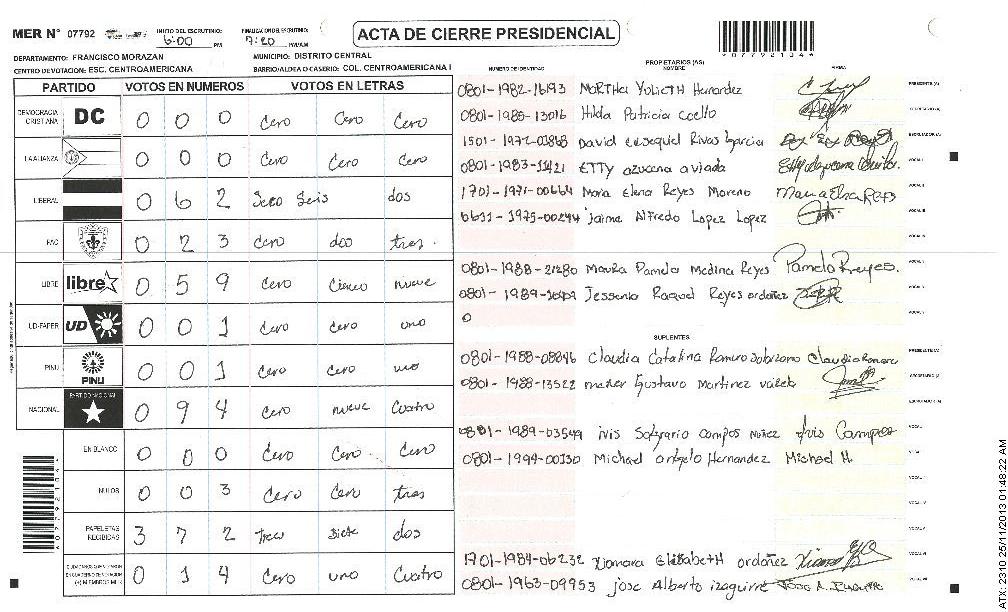 MER Nº 07792
INICIO DEL ESCRUTINIO: 6:00 PM
FINALIZACION DEL ESCRUTINIO: 7:20 PM/AM
ACTA DE CIERRE PRESIDENCIAL
DEPARTAMENTO: FRANCISCO MORAZAN
MUNICIPIO: DISTRITO CENTRAL
CENTRO DE VOTACION: ESC. CENTROAMERICANA
BARRIO/ALDEA O CASERIO: COL. CENTROAMERICANA I
PARTIDO VOTOS EN NUMEROS VOTOS EN LETRAS
DEMOCRACIA CRISTIANA DC 0 0 0 Cero Cero Cero
LA ALIANZA 0 0 0 Cero Cero Cero
LIBERAL 0 6 2 Sero Seis dos
PAC 0 2 3 Cero dos tres.
LIBRE libre 0 5 9 Cero Cinco nueve
UD-FAPER UD 0 0 1 Cero Cero uno
PINU PINU 0 0 1 Cero Cero uno
NACIONAL PARTIDO NACIONAL 0 9 4 Cero nueve Cuatro
EN BLANCO 0 0 0 Cero Cero Cero
NULOS 0 0 3 Cero Cero tres
PAPELETAS RECIBIDAS 3 7 2 Tres Siete dos
0 1 4 Cero uno Cuatro
NUMERO DE IDENTIDAD PROPIETARIOS (AS) NOMBRE FIRMA
0801-1982-16193 Martha Yolieth Hernandez PRESIDENTE (A)
0801-1985-13016 Hilda Patricia coello SECRETARIO (A)
1501-1972-01868 David exsequiel Rivas Garcia ESCRUTADOR (A)
0801-1983-11421 ETTY azucena aviada VOCAL I
1701-1971-00664 Maria Elena Reyes Moreno Maria Elna Reys VOCAL II
0611-1975-00244 jaime Alfredo Lopez Lopez VOCAL III
0801-1988-21280 Maura Pamela Medina Reyes Pamela Reyes.
0801-1989-16409 Jessenia Raquel Reyes ordoñez
0
SUPLENTES
0801-1988-08846 Claudia Catalina Ramiro Claudia PRESIDENTE (A)
0801-1988-13522 Gustavo Martinez SECRETARIO (A)
ESCRUTADOR (A)
0801-1989-03549 ivis Sagrario campos Nuñez Ivis Campos
0801-1994-00130 Michael angelo Hernandez Michael H.
1701-1984-06232 Xiomara Elisabeth ordoñez
0801-1963-09953 jose Alberto izaguirre
0779210A4
ATX-2310 25/11/2013 01:48:22 AM